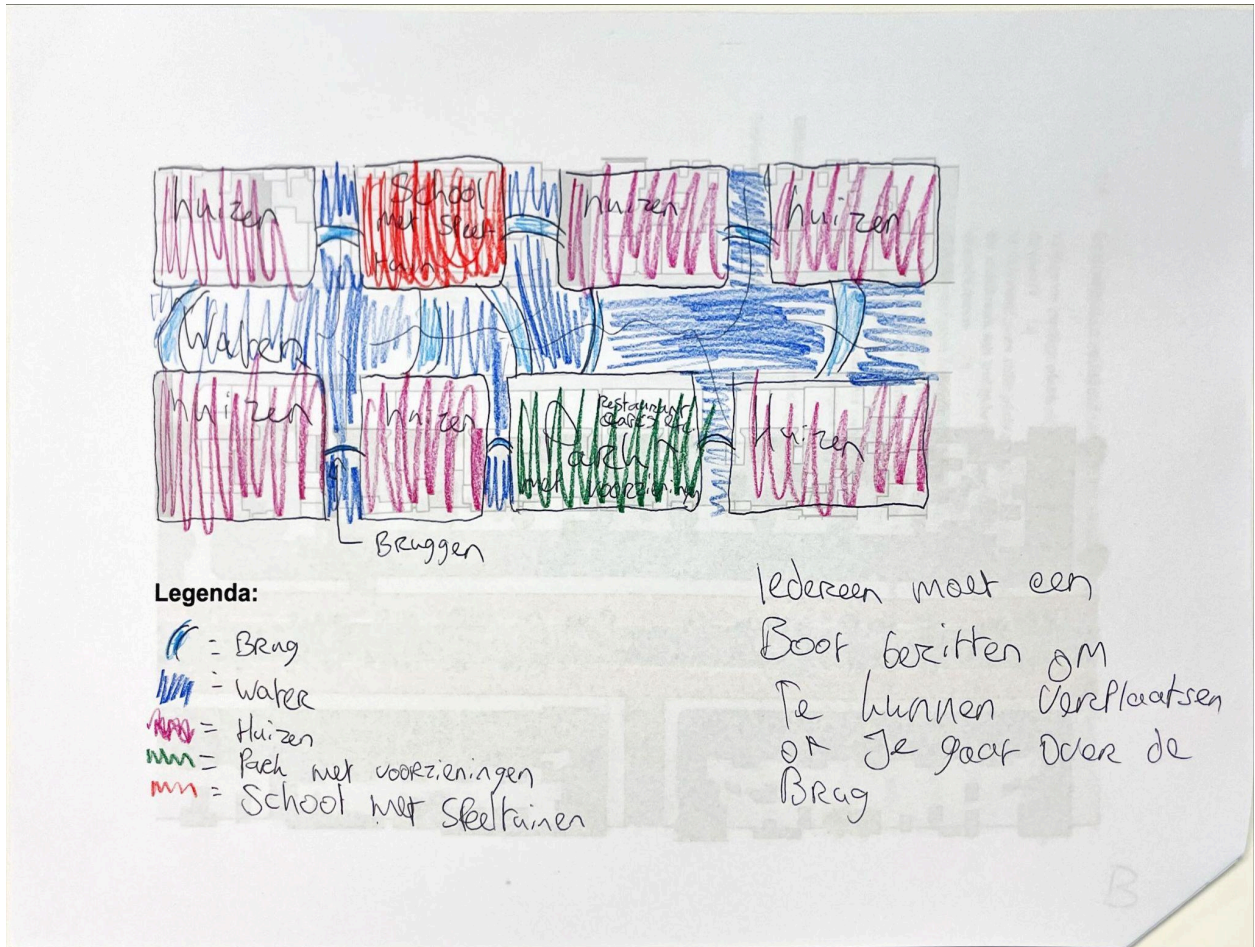 huizen
School
met speel-
tuin
huizen
huizen
Water
huizen
huizen
restaurant
cafés etc.
Park
met voorziening
huizen
Bruggen
Legenda:
= Brug
= water
= Huizen
= Park met voorzieningen
= School met Speeltuinen
Iedereen moet een
Boot bezitten om
Te kunnen verplaatsen
of Je gaat over de
Brug
B